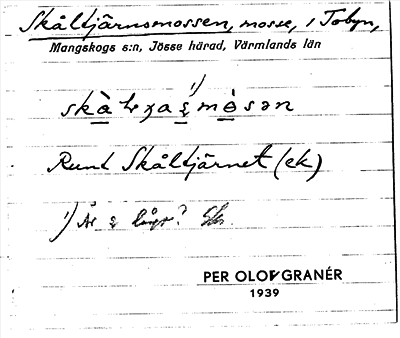 Skåltjärnsmossen, mosse, i Tobyn,
Mangskogs s:n, Jösse härad, Värmlands län
1)
mòsən
Runt Skåltjärnet (ek)
1) Är s lågt?
PER OLOF GRANÉR
1939